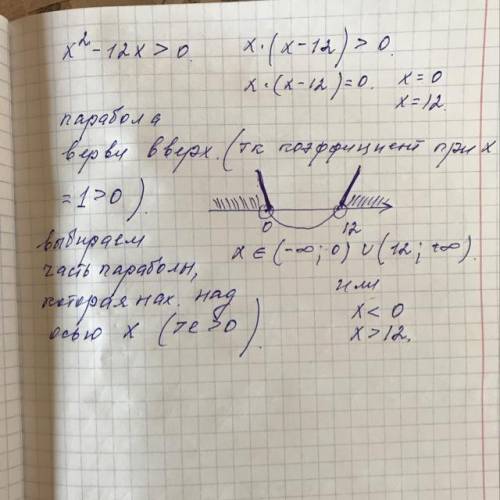 x² - 12x > 0.
x·(x-12) > 0.
x·(x-12) = 0. x = 0
x = 12.
парабола
ветви вверх. (тк коэффициент при x
= 1 > 0).
0 12
выбираем
часть параболы,
которая нах. над
осью x (те > 0).
x ∈ (-∞; 0) ∪ (12; +∞).
или
x < 0
x > 12.